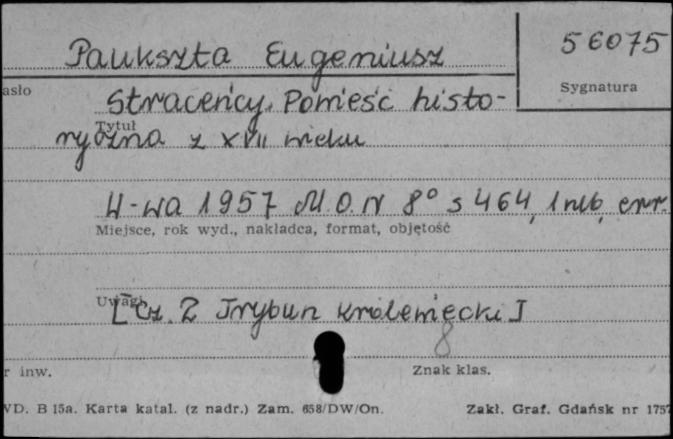 Paukszta Eugeniusz
56075
asło
Sygnatura
Straceńcy. Powieść histo-
Tytuł
ryczna z XVII wieku
W-wa 1957 M.O.N 8° s 464, 1 nlb, err.
Miejsce, rok wyd., nakładca, format, objętość
Uwagi
[Cz. 2 Trybun królewiecki]
8
r inw.
Znak klas.
WD. B 15a. Karta katal. (z nadr.) Zam. 658/DW/On.
Zakł. Graf. Gdańsk nr 1757